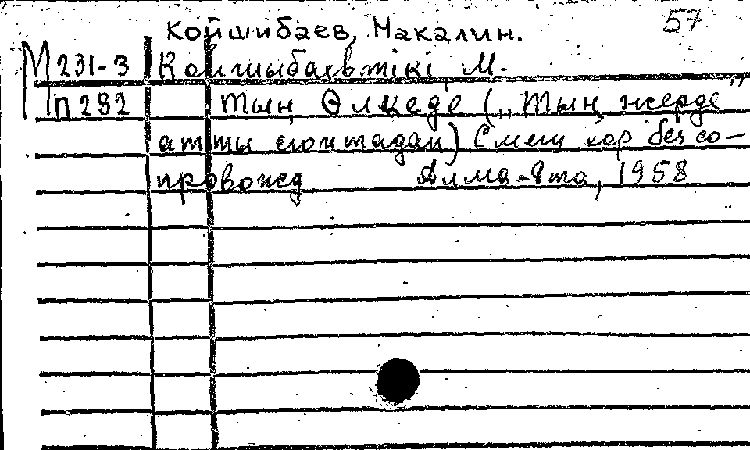 Койшибаев, Макалин.
57
М 231-3 Койшыбаевтікі М.
П 282 Тың Өлкеде („Тың жерде"
атты сюитадан) Смеш хор без со-
провожд Алма-Ата, 1958